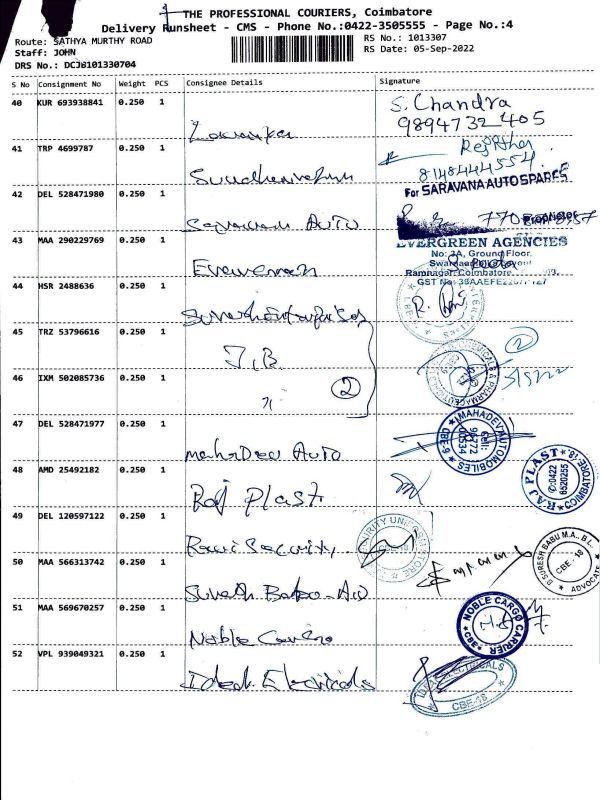 THE PROFESSIONAL COURIERS, Coimbatore
Delivery Runsheet - CMS - Phone No.:0422-3505555 - Page No.:4
Route: SATHYA MURTHY ROAD
RS No.: 1013307
Staff: JOHN
RS Date: 05-Sep-2022
DRS No.: DCJB101330704
S No Consignment No Weight PCS Consignee Details Signature
40 KUR 693938841 0.250 1 S. Chandra
9894732405
41 TRP 4699787 0.250 1
8148444554
For SARAVANA AUTO SPARES
42 DEL 528471980 0.250 1 Auto
Proprietor
43 MAA 290229769 0.250 1 EVERGREEN AGENCIES
No: 3A, Ground Floor,
Ramnagar, Coimbatore
44 HSR 2488636 0.250 1
45 TRZ 53796616 0.250 1 J.B.
2
46 IXM 502085736 0.250 1 2
5/9/22
47 DEL 528471977 0.250 1 mahaDev Auto MAHADEV AUTOMOBILES CBE-9 Cell:
48 AMD 25492182 0.250 1 Raj Plast RAJ PLAST COIMBATORE-18. 0422 6520255
49 DEL 120597122 0.250 1 Ravi Security
50 MAA 566313742 0.250 1 D SURESH BABU M.A., B.L. ADVOCATE CBE-18
51 MAA 569670257 0.250 1 Noble NOBLE CARGO CARRIER CBE
52 VPL 939049321 0.250 1 Ideal Electricals IDEAL ELECTRICALS CBE-18